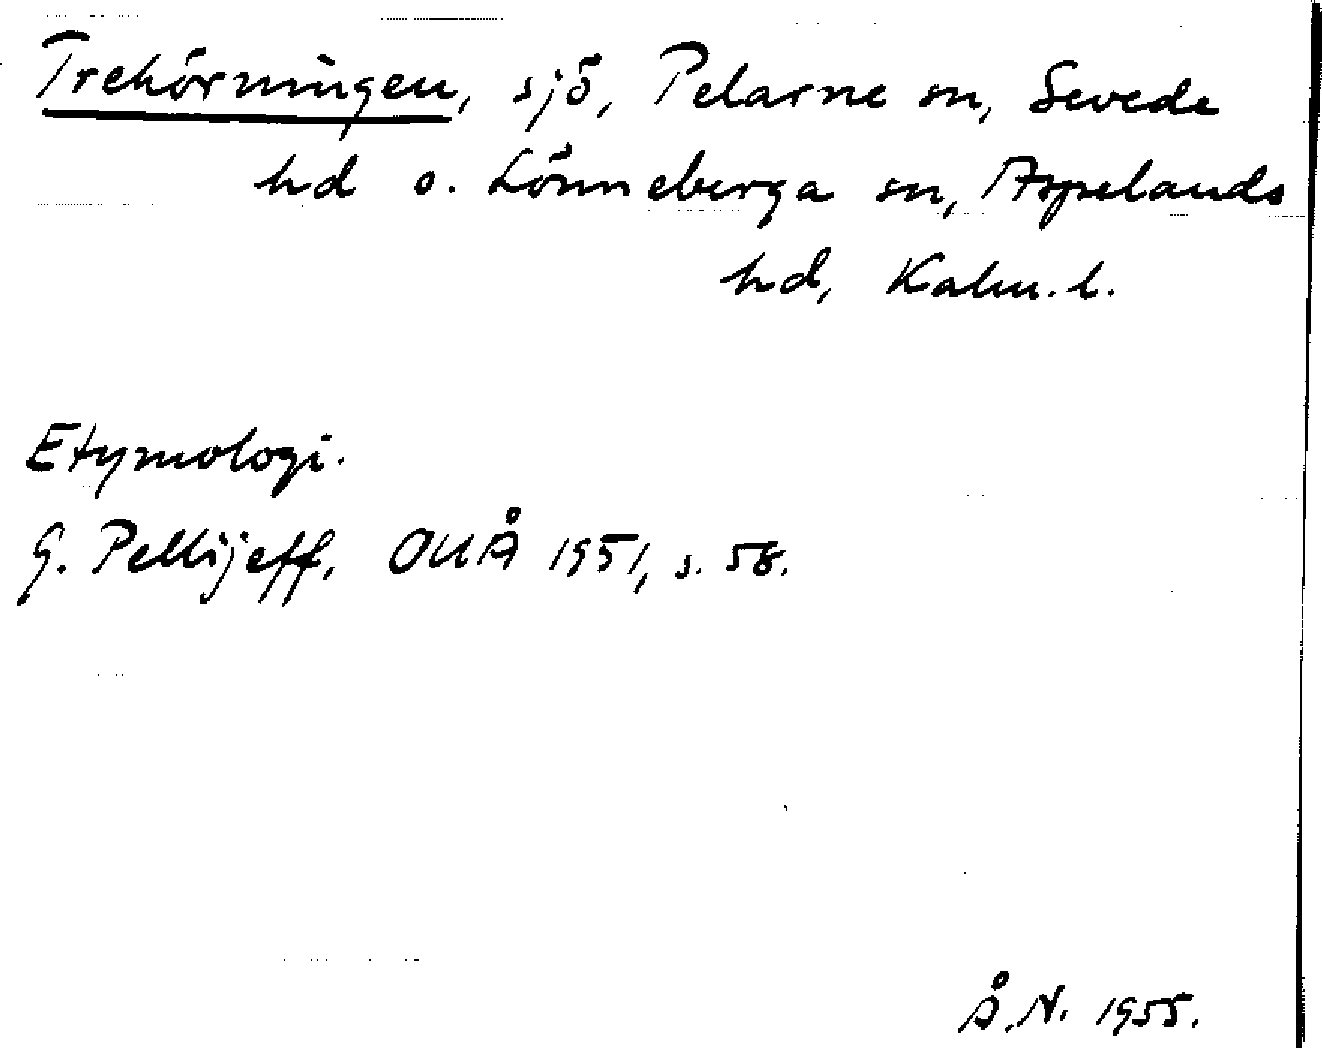 Trehörningen, sjö, Pelarne sn, Sevede
hd o. Lönneberga sn, Aspelands
hd, Kalm. l.
Etymologi.
G. Pellijeff, OUÅ 1951, s. 58.
Å.N. 1955.